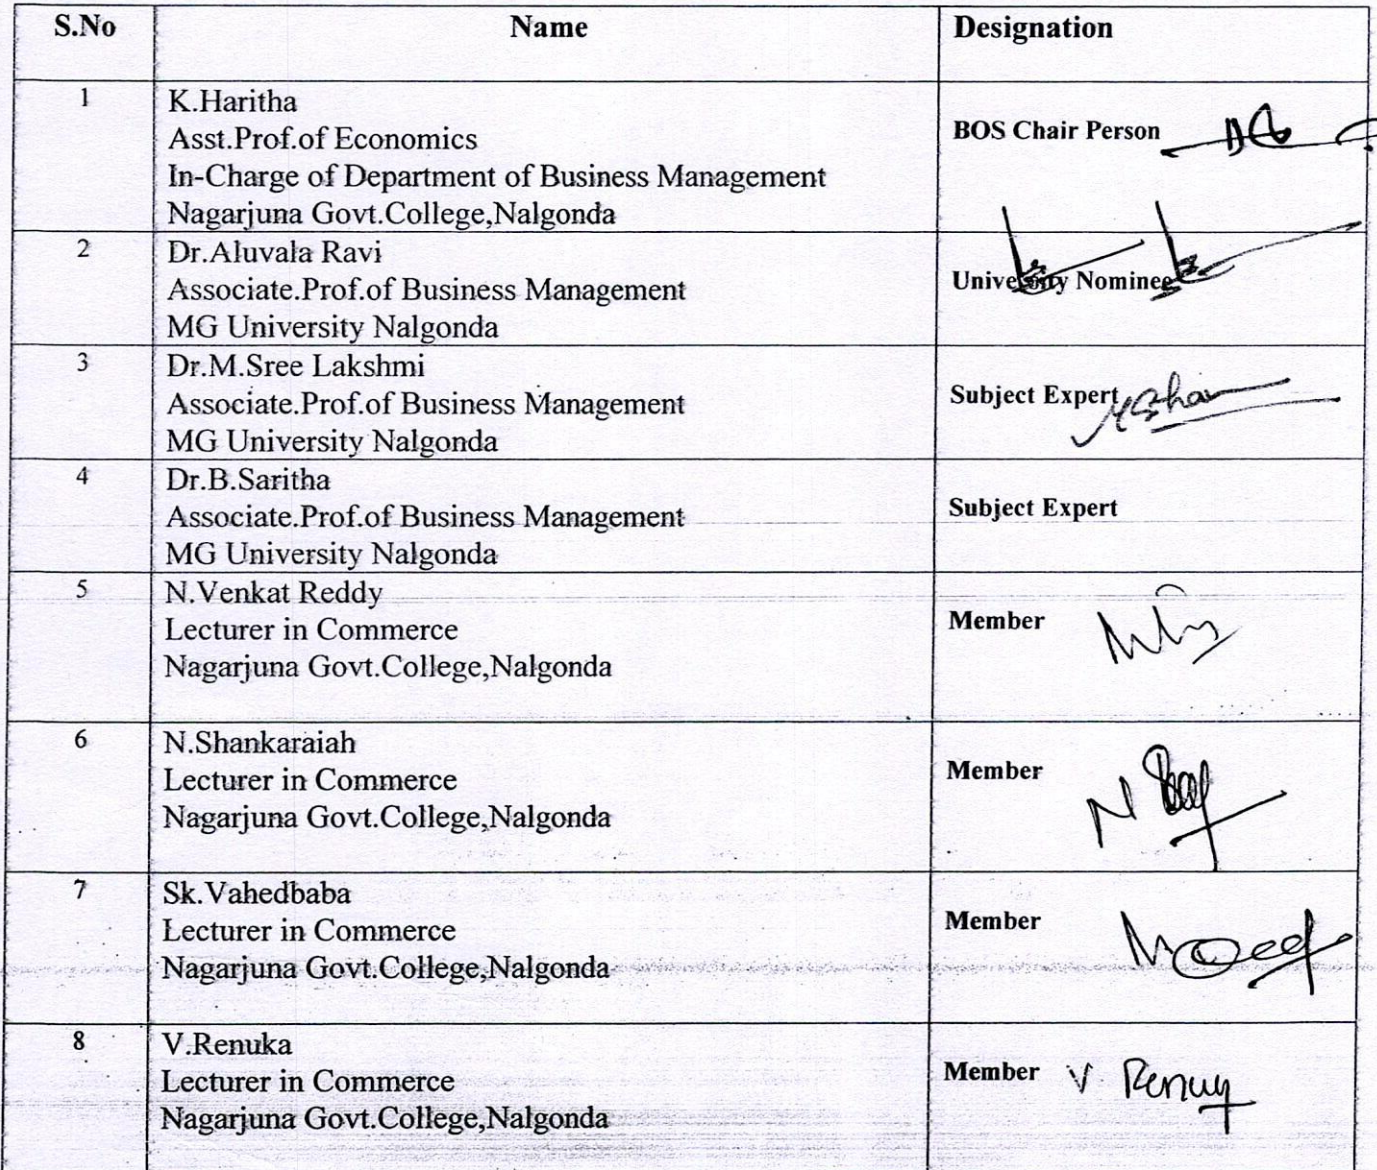 S.No Name Designation
1 K.Haritha
Asst.Prof.of Economics
In-Charge of Department of Business Management
Nagarjuna Govt.College,Nalgonda
BOS Chair Person
2 Dr.Aluvala Ravi
Associate.Prof.of Business Management
MG University Nalgonda
University Nominee
3 Dr.M.Sree Lakshmi
Associate.Prof.of Business Management
MG University Nalgonda
Subject Expert
4 Dr.B.Saritha
Associate.Prof.of Business Management
MG University Nalgonda
Subject Expert
5 N.Venkat Reddy
Lecturer in Commerce
Nagarjuna Govt.College,Nalgonda
Member
6 N.Shankaraiah
Lecturer in Commerce
Nagarjuna Govt.College,Nalgonda
Member
7 Sk.Vahedbaba
Lecturer in Commerce
Nagarjuna Govt.College,Nalgonda
Member
8 V.Renuka
Lecturer in Commerce
Nagarjuna Govt.College,Nalgonda
Member V.